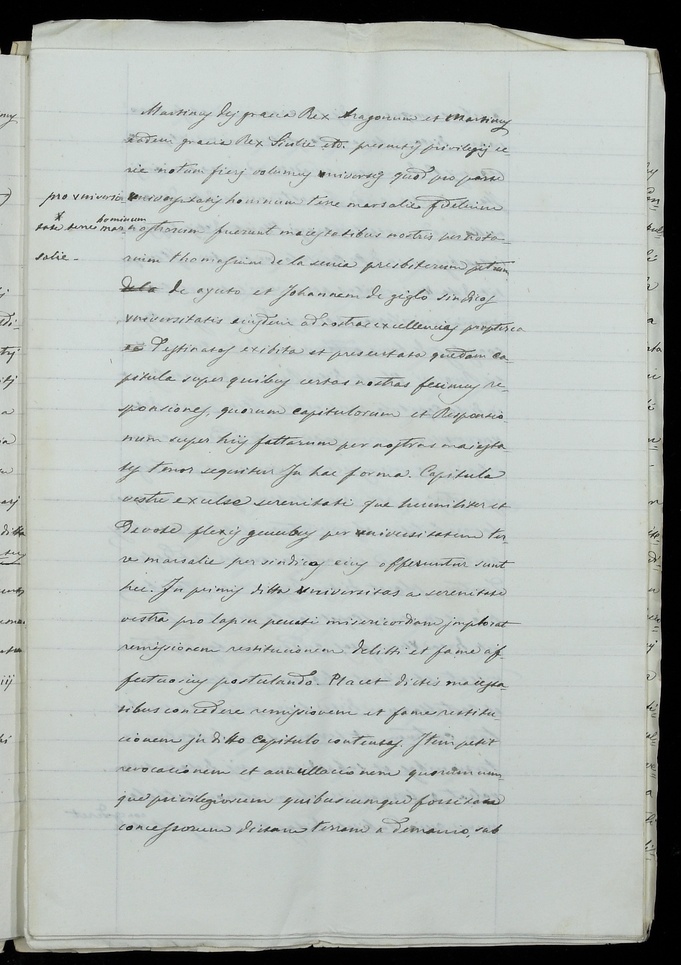 Martinus dej gracia Rex Aragonum et Martinus
eadem gracia Rex Sicilie etc. presentis privilegij se-
rie notum fierj volumus universis quod pro parte
universitatis hominum terre marsalie fidelium
pro universi
tate terre mar
hominum
salie -
nostrorum fuerunt maiestatibus nostris per nota-
rium thomasium de la seuia presbiterum petrum
de la de ayuto et Johannem de giglo sindicos
vniversitatis eiusdem ad nostras excellencias propterea
destinatos exibita et presentata quedam ca-
pitula super quibus certas nostras fecimus re-
sponsiones, quorum capitulorum et Responsio-
num super hijs fattarum per nostras maiesta
tes tenor sequitur Jn hac forma. Capitula
vestre excelse serenitati que humiliter et
Devote flexis genubus per universitatem ter-
re marsalie per sindicos eius offeruntur sunt
hec. Jn primis ditta universitas a serenitate
vestra pro lapsu peccati misericordiam jmplorat
remissionem restitucionem delitti et fame af-
fectuosius postulando. Placet dictis maiesta-
tibus concedere remissionem et fame restitu
cionem jn ditto Capitulo contentas. Jtem petit
revocacionem et annullacionem quorumcum-
que privilegiorum quibuscumque forsitan
concessorum dictam terram a demanio, sub